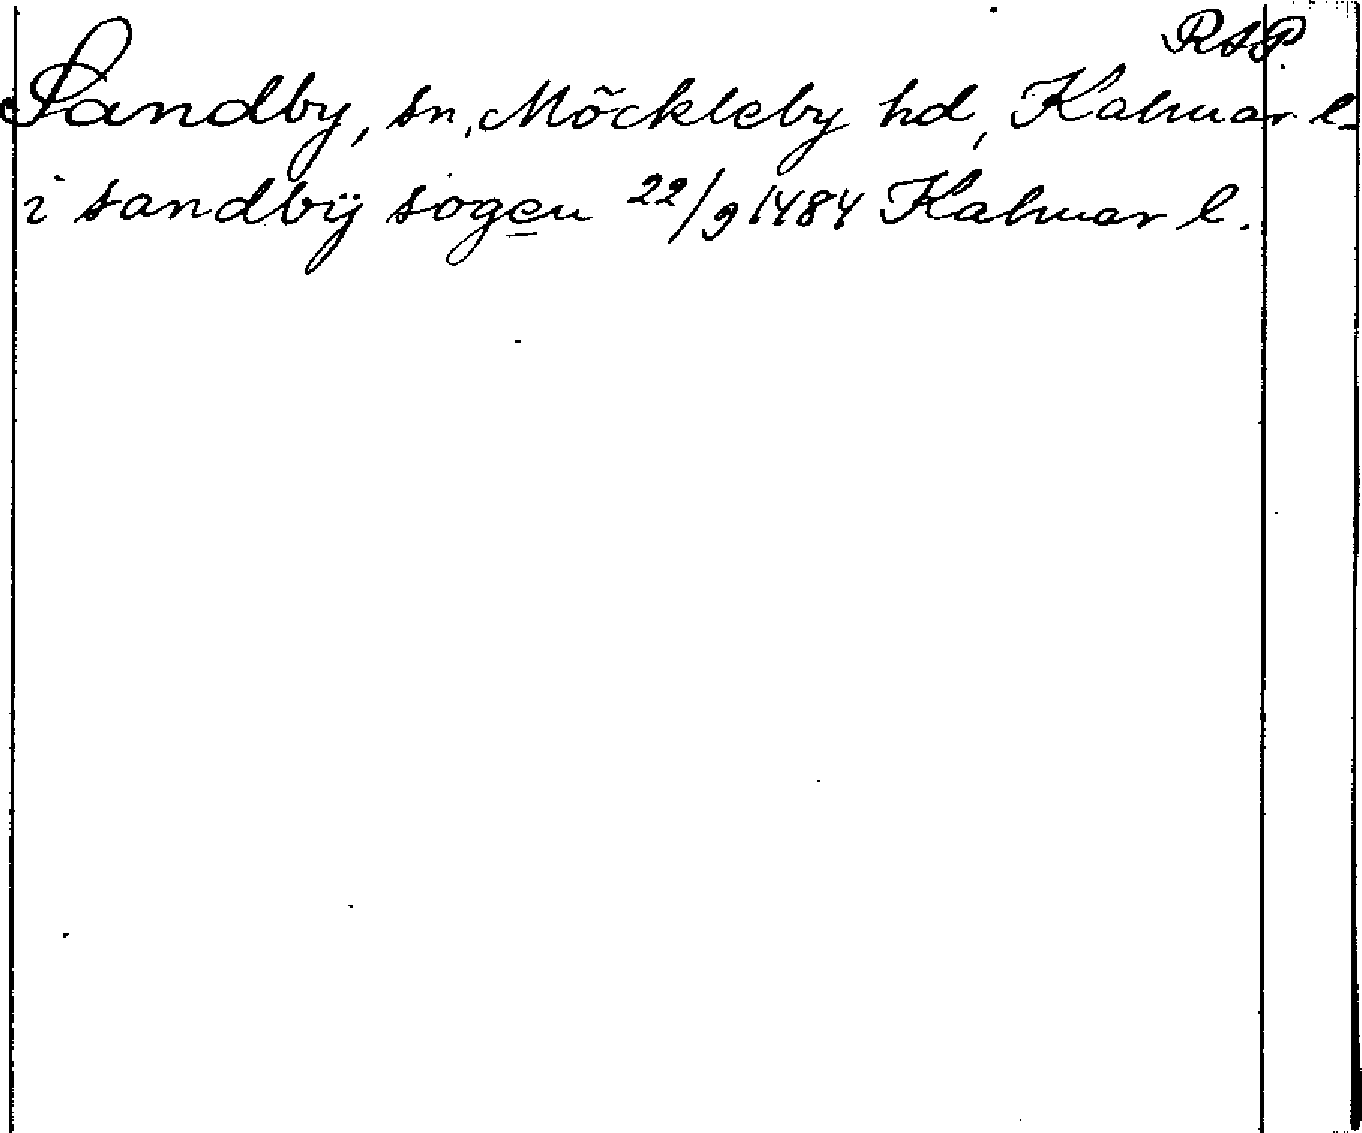 RAP.
Sandby, sn, Möckleby hd, Kalmar l.
i sandbÿ sogen 22/9 1484 Kalmar l.